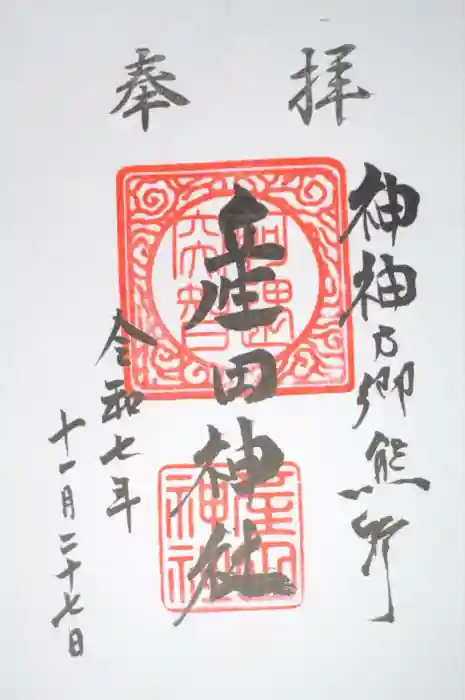 奉拝
神神乃郷熊野
産田神社
令和七年
十一月二十七日
産田
神社